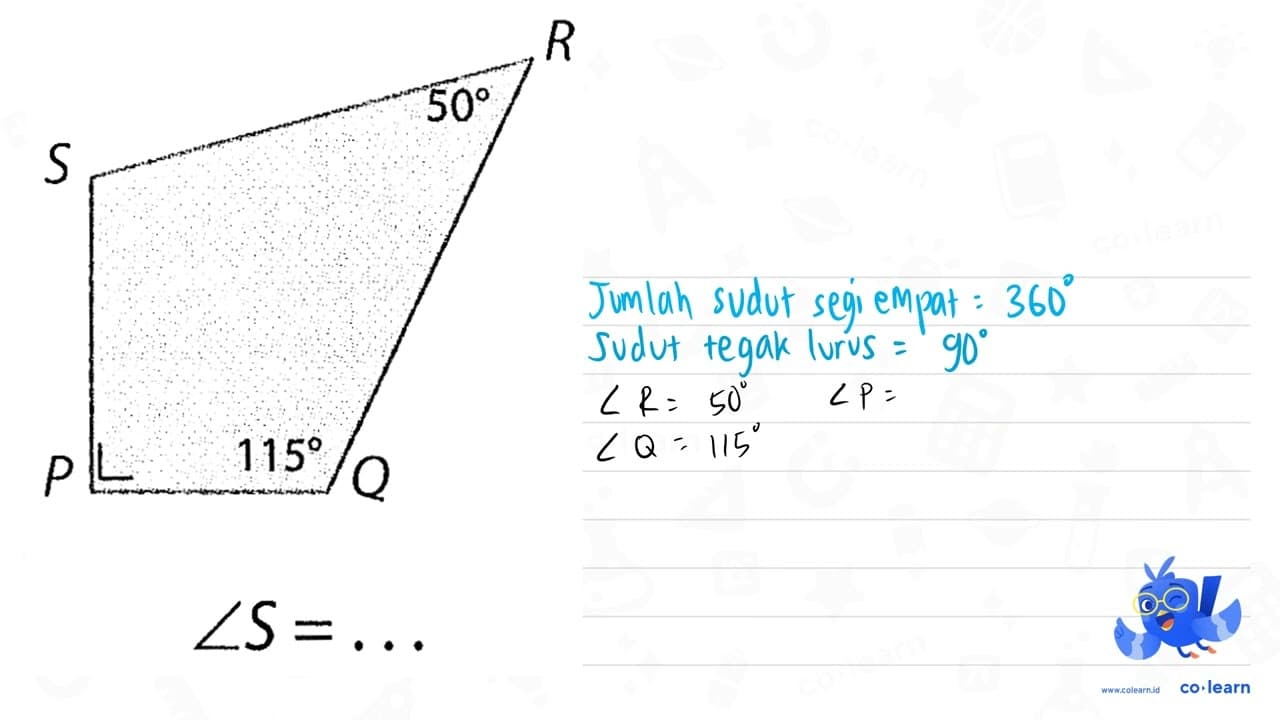 R
50°
S
115°
P
Q
∠S = ...
Jumlah sudut segi empat = 360°
Sudut tegak lurus = 90°
∠ R = 50° ∠ P =
∠ Q = 115°
www.colearn.id
co·learn